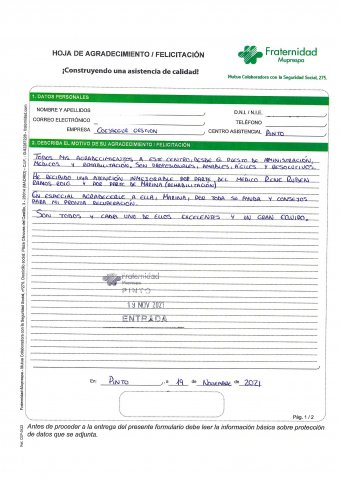 HOJA DE AGRADECIMIENTO / FELICITACIÓN
¡Construyendo una asistencia de calidad!
Fraternidad
Muprespa
Mutua Colaboradora con la Seguridad Social, 275.
1. DATOS PERSONALES
NOMBRE Y APELLIDOS
D.N.I. / N.I.E.
CORREO ELECTRÓNICO
TELÉFONO
EMPRESA
GESTION
CENTRO ASISTENCIAL PINTO
2. DESCRIBA EL MOTIVO DE SU AGRADECIMIENTO / FELICITACIÓN
TODOS MIS AGRADECIMIENTOS A ESTE CENTRO, DESDE EL PUESTO DE ADMINISTRACIÓN,
MEDICOS Y REHABILITACIÓN, SON PROFESIONALES, AMABLES, AGILES Y RESOLUTIVOS.
HE RECIBIDO UNA ATENCIÓN INMEJORABLE POR PARTE DEL MÉDICO RENE RUBEN
RAMOS ROIG Y POR PARTE DE MARINA (REHABILITACIÓN)
EN ESPECIAL AGRADECERLE A ELLA, MARINA, POR TODA SU AYUDA Y CONSEJOS
PARA MI PRONTA RECUPERACIÓN.
SON TODOS Y CADA UNO DE ELLOS EXCELENTES Y UN GRAN EQUIPO.
Fraternidad
Muprespa
PINTO
19 NOV 2021
ENTRADA
En PINTO, a 19 de NOVIEMBRE de 2021
Pág. 1 / 2
Antes de proceder a la entrega del presente formulario debe leer la información básica sobre protección
de datos que se adjunta.